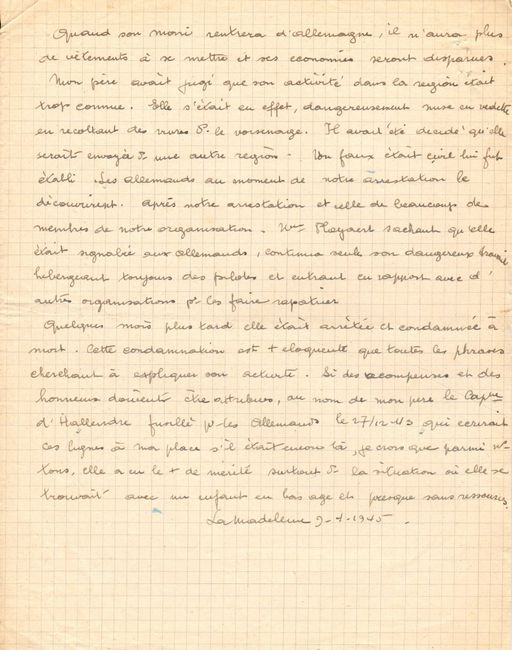 Quand son mari rentrera d'allemagne, il n'aura plus
de vêtements à se mettre et ses economies seront disparues.
Mon père avait jugé que son activité dans la region était
trop connue. Elle s'était en effet, dangereusement mise en vedette
en recoltant des vivres ds le voisinage. Il avait été decidé qu'elle
serait envoyée ds une autre region. Un faux état civil lui fut
établi. Les allemands au moment de notre arrestation le
découvrirent. après notre arrestation et celle de beaucoup de
membres de notre organisation. Mme sachant qu'elle
était signalée aux allemands, continua seule son dangereux travail
hébergeant toujours des pilotes et entrant en rapport avec d'
autres organisations pr les faire rapatrier
Quelques mois plus tard elle était arrêtée et condamnée à
mort. Cette condamnation est + eloquente que toutes les phrases
cherchant à expliquer son activité. Si des recompenses et des
honneurs doivent être attribués, au nom de mon père le Capne
d'Hallendre fusillé pr les Allemands le 27/12/43 qui ecrirait
ces lignes à ma place s'il était encore là, je crois que parmi ns
tous, elle a eu le + de mérite surtout ds la situation où elle se
trouvait avec un enfant en bas age et presque sans ressources.
La Madeleine 9-4-1945.